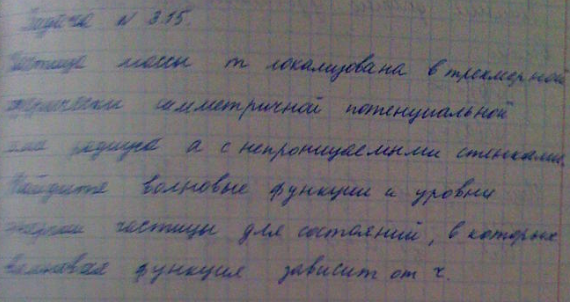 Задача № 3.15.
Частица массы m локализована в трехмерной
сферически симметричной потенциальной
яме радиуса a с непроницаемыми стенками.
Найдите волновые функции и уровни
энергии частицы для состояний, в которых
волновая функция зависит от r.